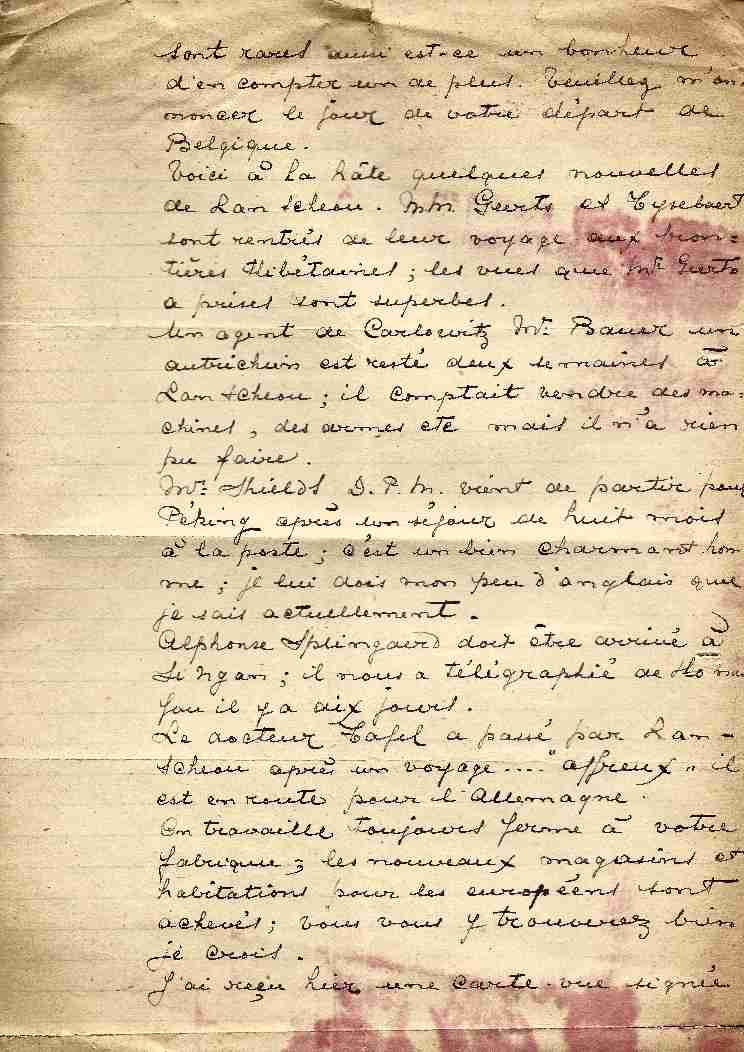 sont rares aussi est-ce un bonheur
d'en compter un de plus. Veuillez m'an-
noncer le jour de votre départ de
Belgique.
Voici à la hâte quelques nouvelles
de Lan tcheou. MM. Geerts et Tysebaert
sont rentrés de leur voyage aux fron-
tières thibétaines ; les vues que Mr Geerts
a prises sont superbes.
Un agent de Carlowitz Mr. Bauer un
autrichien est resté deux semaines à
Lan tcheou ; il comptait vendre des ma-
chines, des armes etc mais il n'a rien
pu faire.
Mr. Shields D.P.M. vient de partir pour
Péking après un séjour de huit mois
à la poste ; c'est un bien charmant hom
me ; je lui dois mon peu d'anglais que
je sais actuellement.
Alphonse Splingaerd doit être arrivé à
Si Ngan ; il nous a télégraphié de Ho nan
fou il y a dix jours.
Le docteur Tafel a passé par Lan-
tcheou après un voyage...." affreux „ il
est en route pour l'Allemagne.
On travaille toujours ferme à votre
fabrique ; les nouveaux magasins et
habitations pour les européens sont
achevés ; vous vous y trouverez bien
je crois.
J'ai reçu hier une carte-vue signée